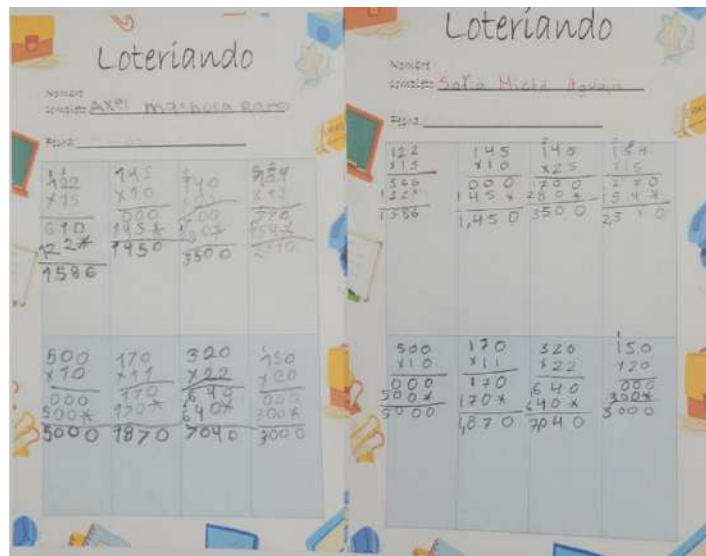 Loteriando
Nombre
completo Axel
Fecha
122
x15
610
122*
1586
145
x10
000
145*
1450
140
3500
154
500
x10
000
500*
5000
170
x11
170
170*
1870
320
x22
640
640*
7040
150
x20
000
300*
3000
Loteriando
Nombre
completo Sofia
Fecha
122
x13
366
122*
1586
145
x10
000
145*
1,450
140
x25
1700
280*
3500
154
x15
154*
2310
500
x10
000
500*
5000
170
x11
170
170*
1,870
320
x22
640
640*
7040
150
x20
000
300*
3000